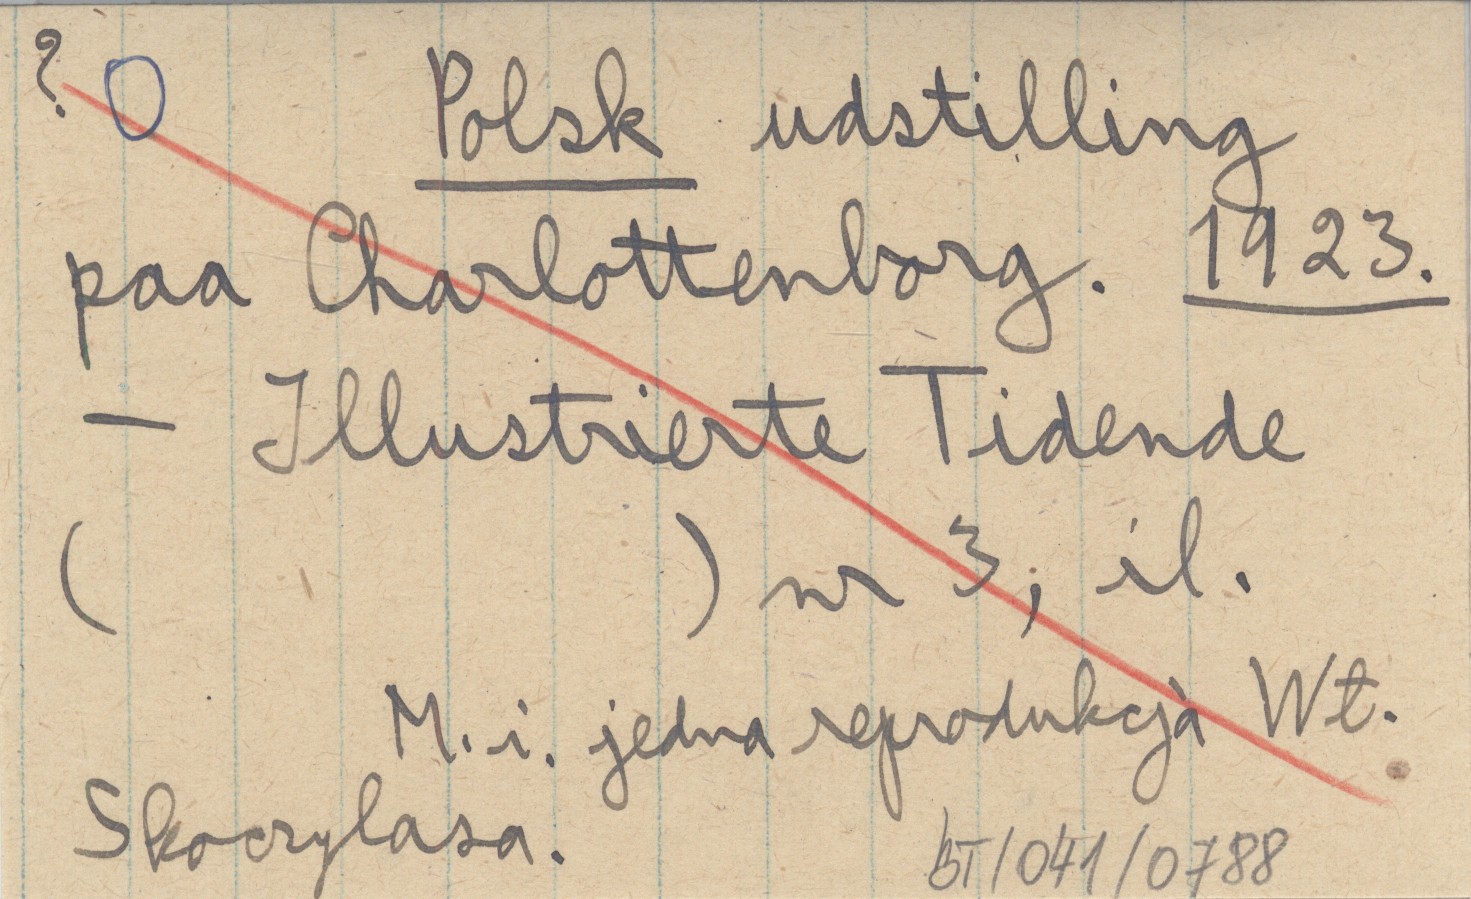 ? O Polsk udstilling
paa Charlottenborg. 1923.
— Illustrierte Tidende
( ) nr 3, il.
M. i. jedna reprodukcja Wł.
Skoczylasa.
BT/041/0788